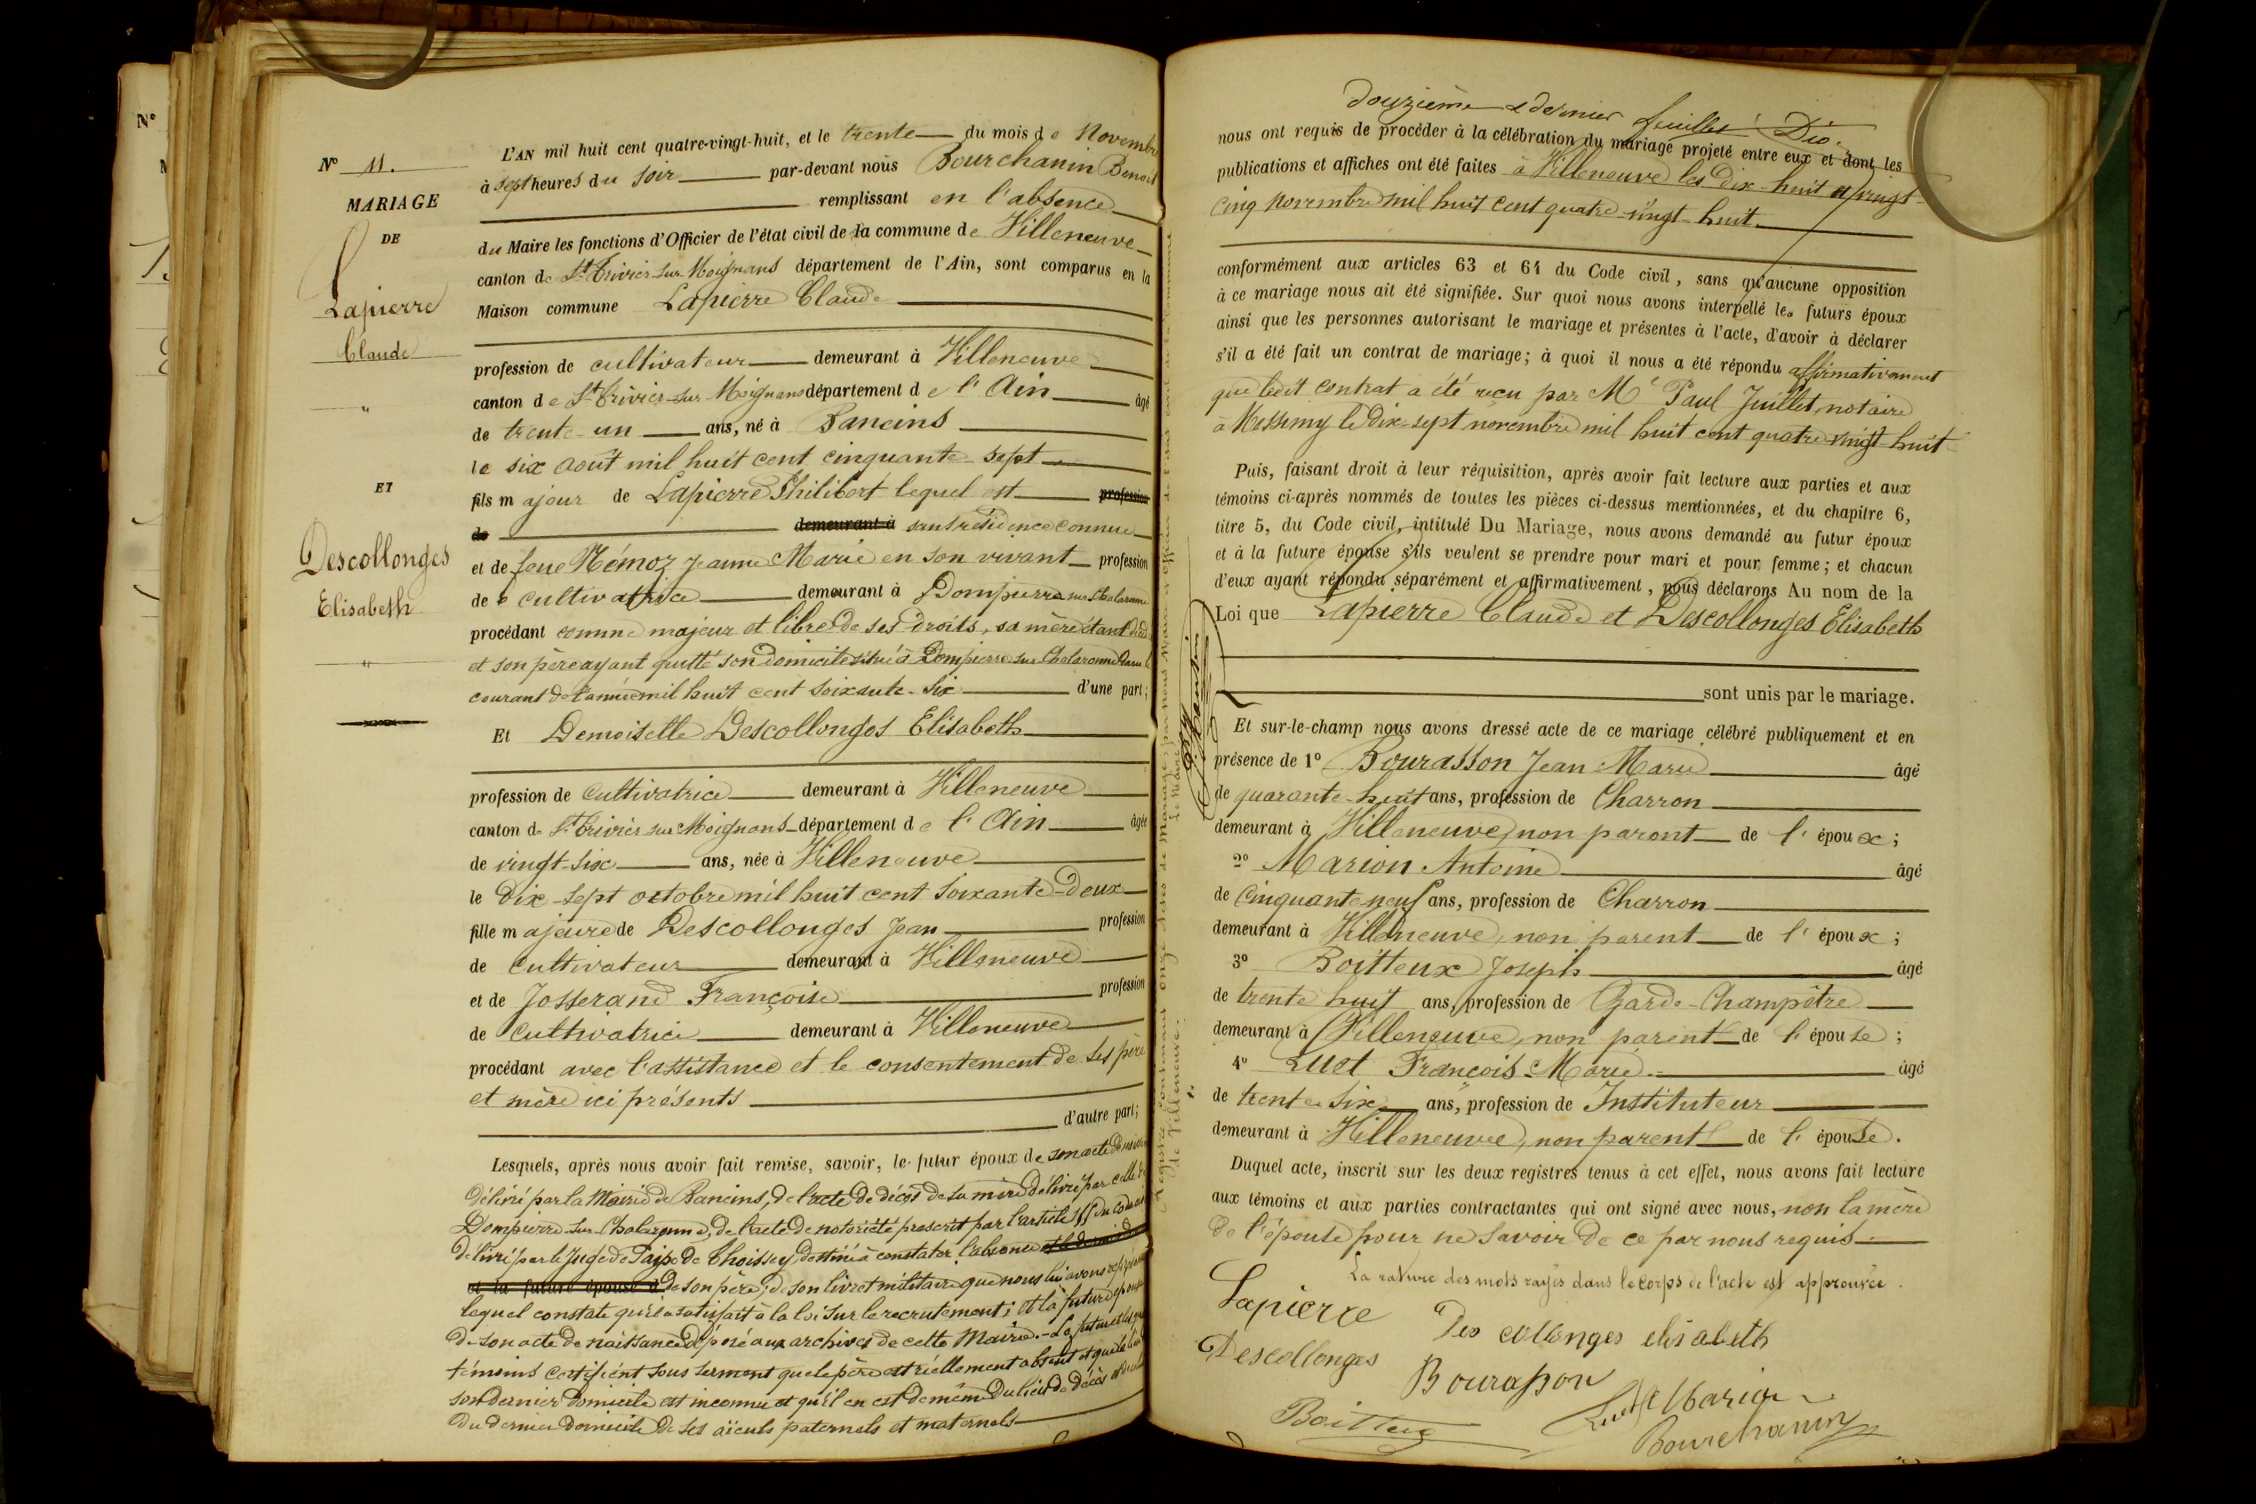 N° 11.
MARIAGE
DE
Lapierre
Claude
"
ET
Descollonges
Elisabeth
"
L'AN mil huit cent quatre-vingt-huit, et le trente du mois de Novembre
à sept heures du soir par-devant nous Bourchanin Benoit
remplissant en l'absence
du Maire les fonctions d'Officier de l'état civil de la commune de Villeneuve
canton de St Trivier-sur-Moignans département de l'Ain, sont comparus en la
Maison commune Lapierre Claude
profession de cultivateur demeurant à Villeneuve
canton de St Trivier-sur-Moignans département de l'Ain âgé
de trente-un ans, né à Baneins
le six août mil huit cent cinquante-sept
fils majeur de Lapierre Philibert lequel est profession
de demeurant à sans résidence connue
et de feue Némoz Jeanne Marie en son vivant profession
de cultivatrice demeurant à Dompierre sur Chalaronne
procédant comme majeur et libre de ses droits, sa mère étant
et son père ayant quitté son domicile situé à Dompierre sur Chalaronne dans le
courant de l'année mil huit cent soixante-six d'une part;
Et Demoiselle Descollonges Elisabeth
profession de cultivatrice demeurant à Villeneuve
canton de St Trivier sur Moignans département de l'Ain âgée
de vingt-six ans, née à Villeneuve
le dix-sept octobre mil huit cent soixante-deux
fille majeure de Descollonges Jean profession
de cultivateur demeurant à Villeneuve
et de Josserand Françoise profession
de cultivatrice demeurant à Villeneuve
procédant avec l'assistance et le consentement de ses père
et mère ici présents
d'autre part;
Lesquels, après nous avoir fait remise, savoir, le futur époux de son acte de
délivré par la Mairie de Baneins, de l'acte de décès de sa mère délivré par celle de
Dompierre-sur-Chalaronne, de l'acte de notoriété prescrit par l'article 155 du
délivré par le Juge de Paix de Thoissey, destiné à constater l'absence
et la future épouse d de son père; de son livret militaire que nous lui avons
lequel constate qu'il a satisfait à la loi sur le recrutement; et la future épouse
de son acte de naissance déposé aux archives de cette Mairie. - Le futur et les
témoins certifient sous serment que le père est réellement absent et que le lieu
son dernier domicile est inconnu et qu'il en est de même du lieu de décès
du dernier domicile de ses aïeuls paternels et maternels
douzième & dernier feuillet Dio.
nous ont requis de procéder à la célébration du mariage projeté entre eux et dont les
publications et affiches ont été faites à Villeneuve les dix-huit et vingt-
cinq novembre mil huit cent quatre-vingt-huit
conformément aux articles 63 et 64 du Code civil, sans qu'aucune opposition
à ce mariage nous ait été signifiée. Sur quoi nous avons interpellé les futurs époux
ainsi que les personnes autorisant le mariage et présentes à l'acte, d'avoir à déclarer
s'il a été fait un contrat de mariage; à quoi il nous a été répondu affirmativement
que ledit contrat a été reçu par Me Paul Juillet, notaire
à Messimy le dix-sept novembre mil huit cent quatre-vingt-huit
Puis, faisant droit à leur réquisition, après avoir fait lecture aux parties et aux
témoins ci-après nommés de toutes les pièces ci-dessus mentionnées, et du chapitre 6,
titre 5, du Code civil, intitulé Du Mariage, nous avons demandé au futur époux
et à la future épouse s'ils veulent se prendre pour mari et pour femme; et chacun
d'eux ayant répondu séparément et affirmativement, nous déclarons Au nom de la
Loi que Lapierre Claude et Descollonges Elisabeth
sont unis par le mariage.
Et sur-le-champ nous avons dressé acte de ce mariage célébré publiquement et en
présence de 1° Bourasson Jean Marie âgé
de quarante-huit ans, profession de Charron
demeurant à Villeneuve, non parent de l'époux;
2° Marion Antoine âgé
de cinquante-neuf ans, profession de Charron
demeurant à Villeneuve, non parent de l'époux;
3° Boitteux Joseph âgé
de trente huit ans, profession de Garde-Champêtre
demeurant à Villeneuve, non parent de l'épouse;
4° Luet François-Marie âgé
de trente six ans, profession de Instituteur
demeurant à Villeneuve, non parent de l'épouse.
Duquel acte, inscrit sur les deux registres tenus à cet effet, nous avons fait lecture
aux témoins et aux parties contractantes qui ont signé avec nous, non la mère
de l'épouse pour ne savoir de ce par nous requis.
La rature des mots rayés dans le corps de l'acte est approuvée.
Lapierre
Des collonges elisabeth
Descollonges
Bourasson
Luet Marion
Boitteux
Bourchanin